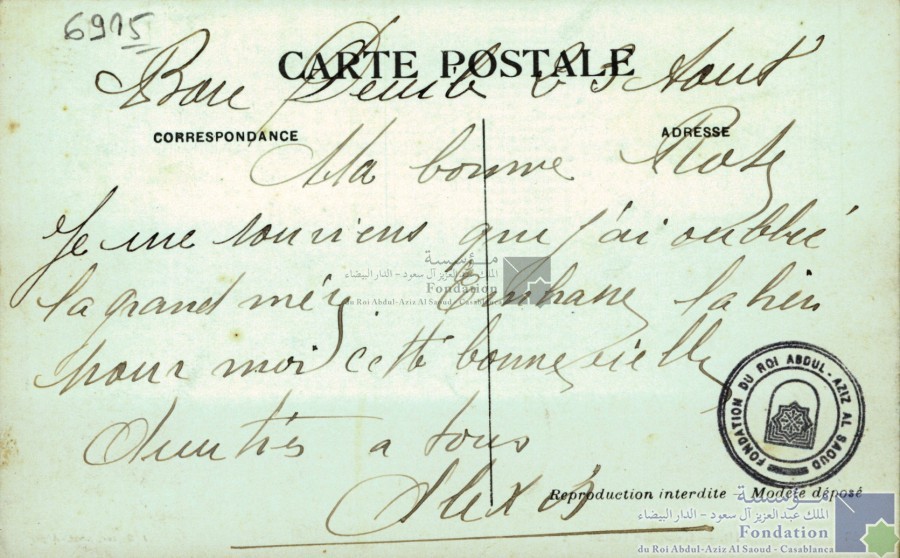 6915
CARTE POSTALE
Bou Denib le 3 Aout
CORRESPONDANCE
ADRESSE
Ma bonne Rose
Je me souviens que j'ai oublié
la grand mère. Embrasse la bien
pour moi cette bonne vieille
a tous
Alex B
Reproduction interdite - Modèle déposé
FONDATION DU ROI ABDUL-AZIZ AL SAOUD
مؤسسة
الملك عبد العزيز آل سعود - الدار البيضاء
Fondation
du Roi Abdul-Aziz Al Saoud - Casablanca
مؤسسة
الملك عبد العزيز آل سعود - الدار البيضاء
Fondation
du Roi Abdul-Aziz Al Saoud - Casablanca